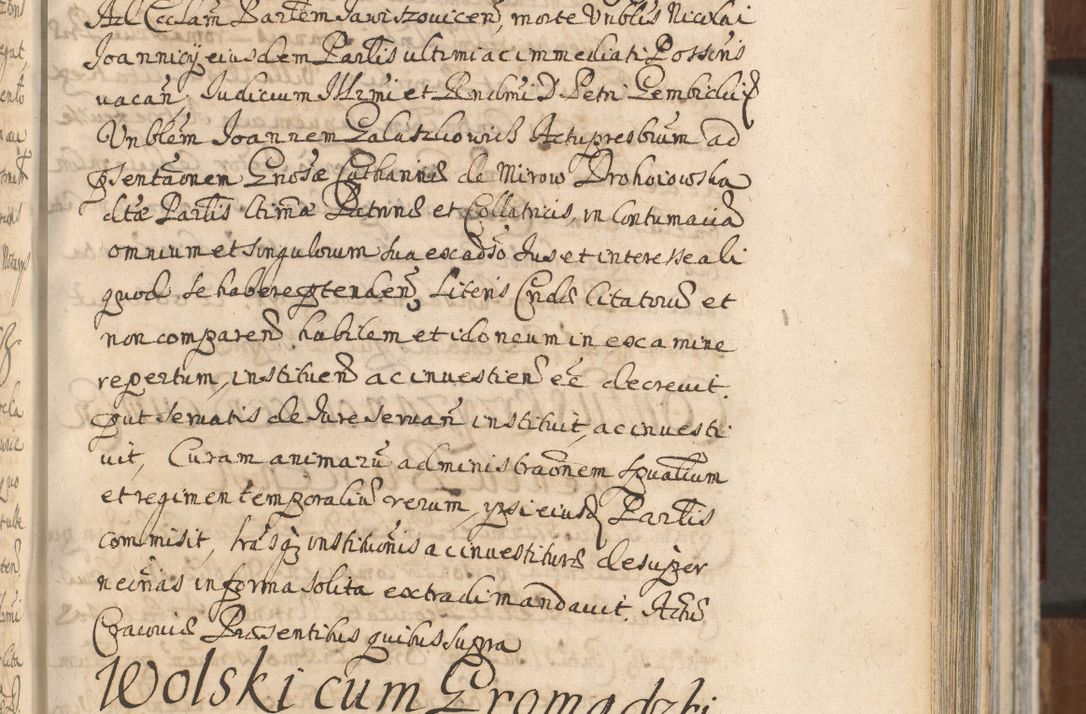 Ad Ecclam Parlem Jawiszovicen, morte Vnblis Nicolai
Joannicy eiusdem Parlis ultimi ac immediati Possris
vacan, Judicium Illrmi et Rndmi D Petri Gembicki
Vnblem Joannem Galuszkowicz Actu presbrum ad
psentaonem Gnosae Catharinae de Mirow Drohoiowska
dtae Parlis Ctimae Patrinae et Collatricis, in Contumacia
omnium et singulorum sua ex adso Jus et interesse ali
quod se habere ptenden, Literis Cridae Citatorum et
non comparen habilem et idoneum in examine
repertum, instituen ac investien ee decrevit.
put servatis de Jure servan instituit, ac investi
vit, Curam animaru administraonem spualium
et regimen temporaliu rerum, ypsi eiusd Parlis
commisit, lrasq institutionis ac investiturae desuper
necrias in forma solita extradi mandavit. Actu
Cracoviae Praesentibus quibus supra
Wolski cum Gromadzki